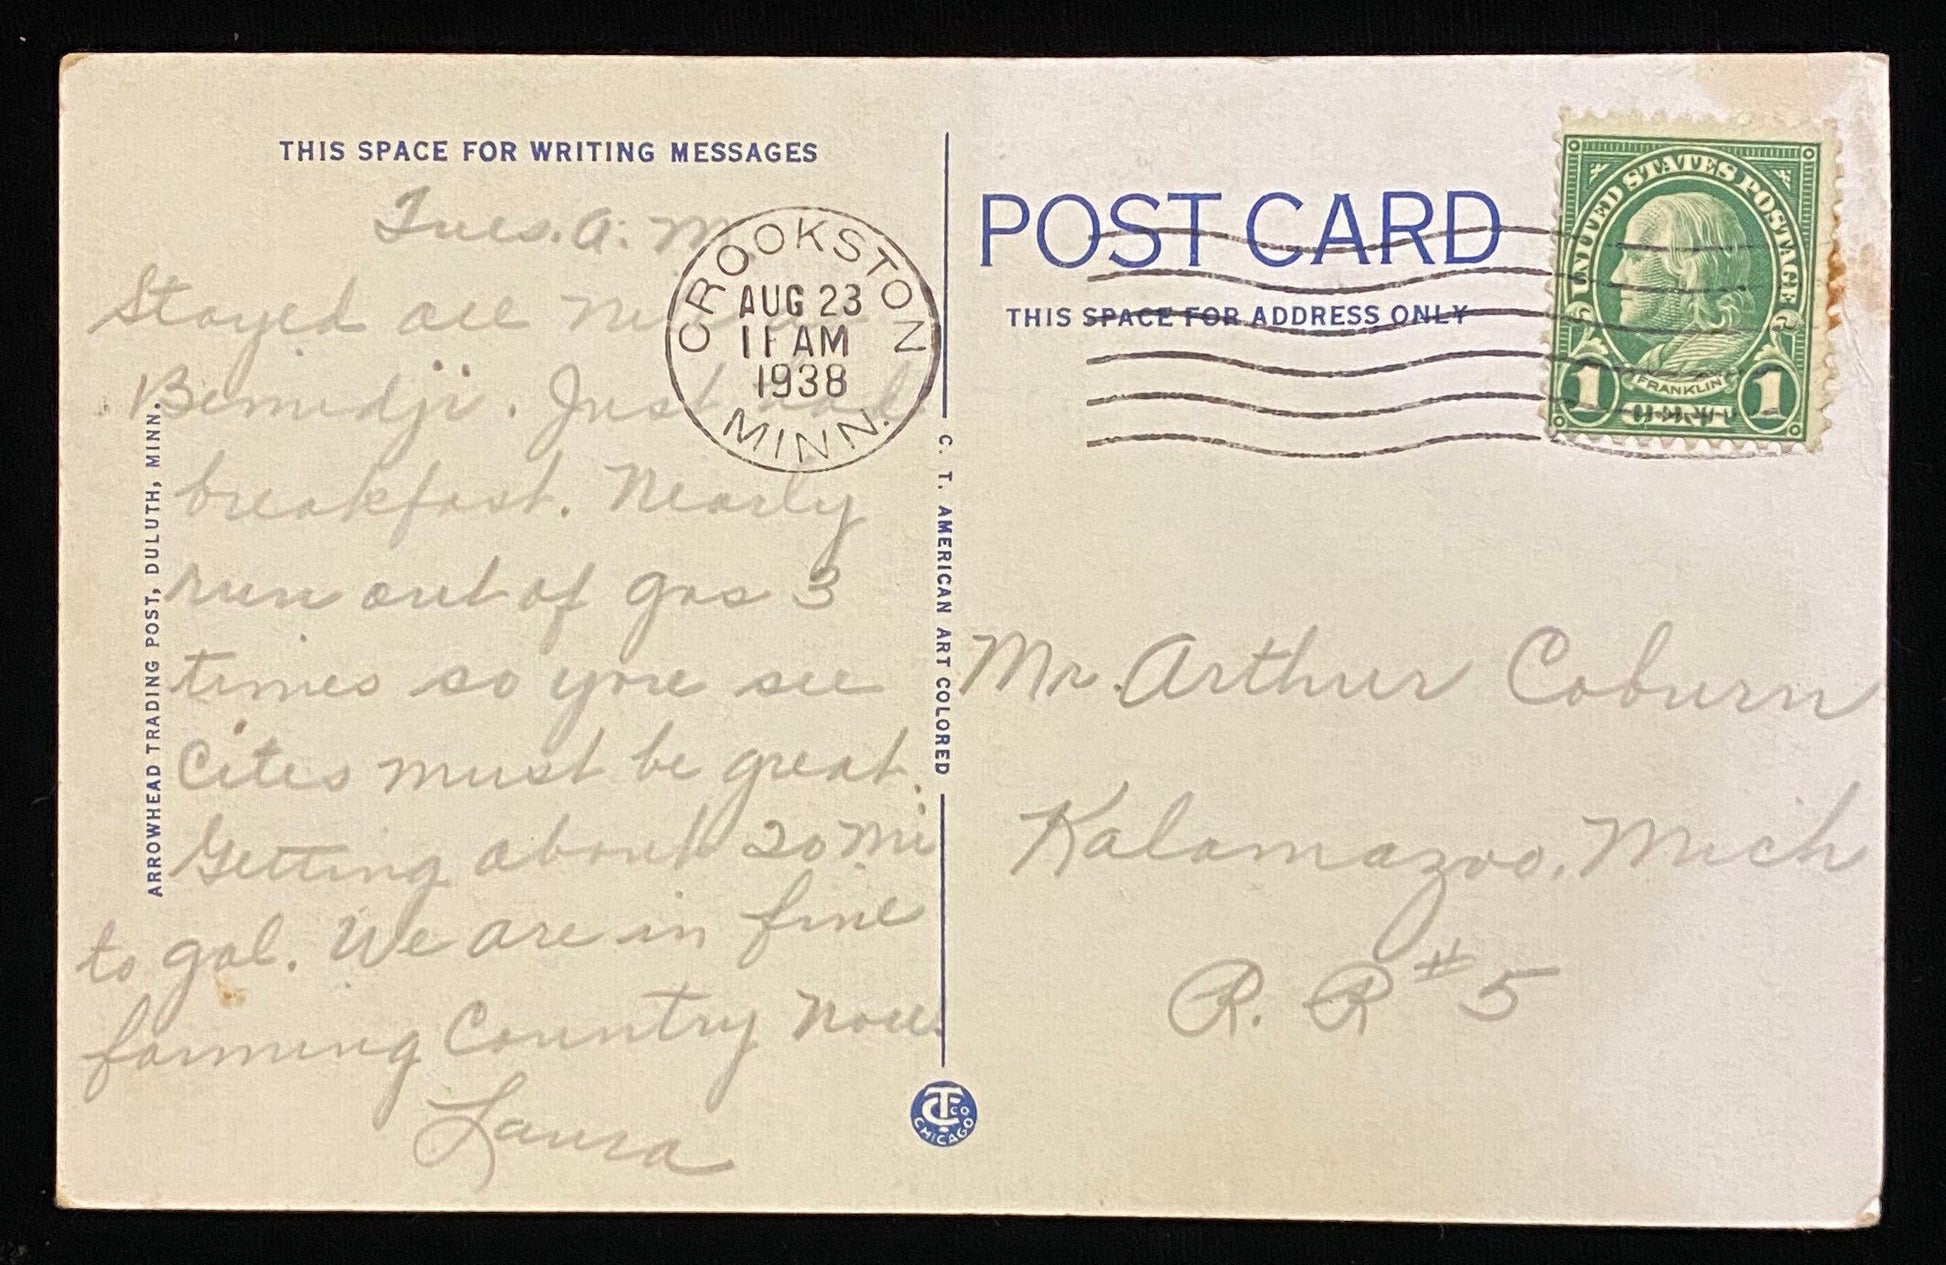 THIS SPACE FOR WRITING MESSAGES
Tues. A. M
Stayed all
Bemidji. Just had
breakfast. Nearly
run out of gas 3
times so you see
Cites must be great.
Getting about 20 mi
to gal. We are in fine
farming Country now.
Laura
ARROWHEAD TRADING POST, DULUTH, MINN.
CROOKSTON
AUG 23
11 AM
1938
MINN.
C. T. AMERICAN ART COLORED
CTCO
CHICAGO
POST CARD
THIS SPACE FOR ADDRESS ONLY
UNITED STATES POSTAGE
FRANKLIN
1 CENT 1
Mr. Arthur Coburn
Kalamazoo, Mich
R. R #5